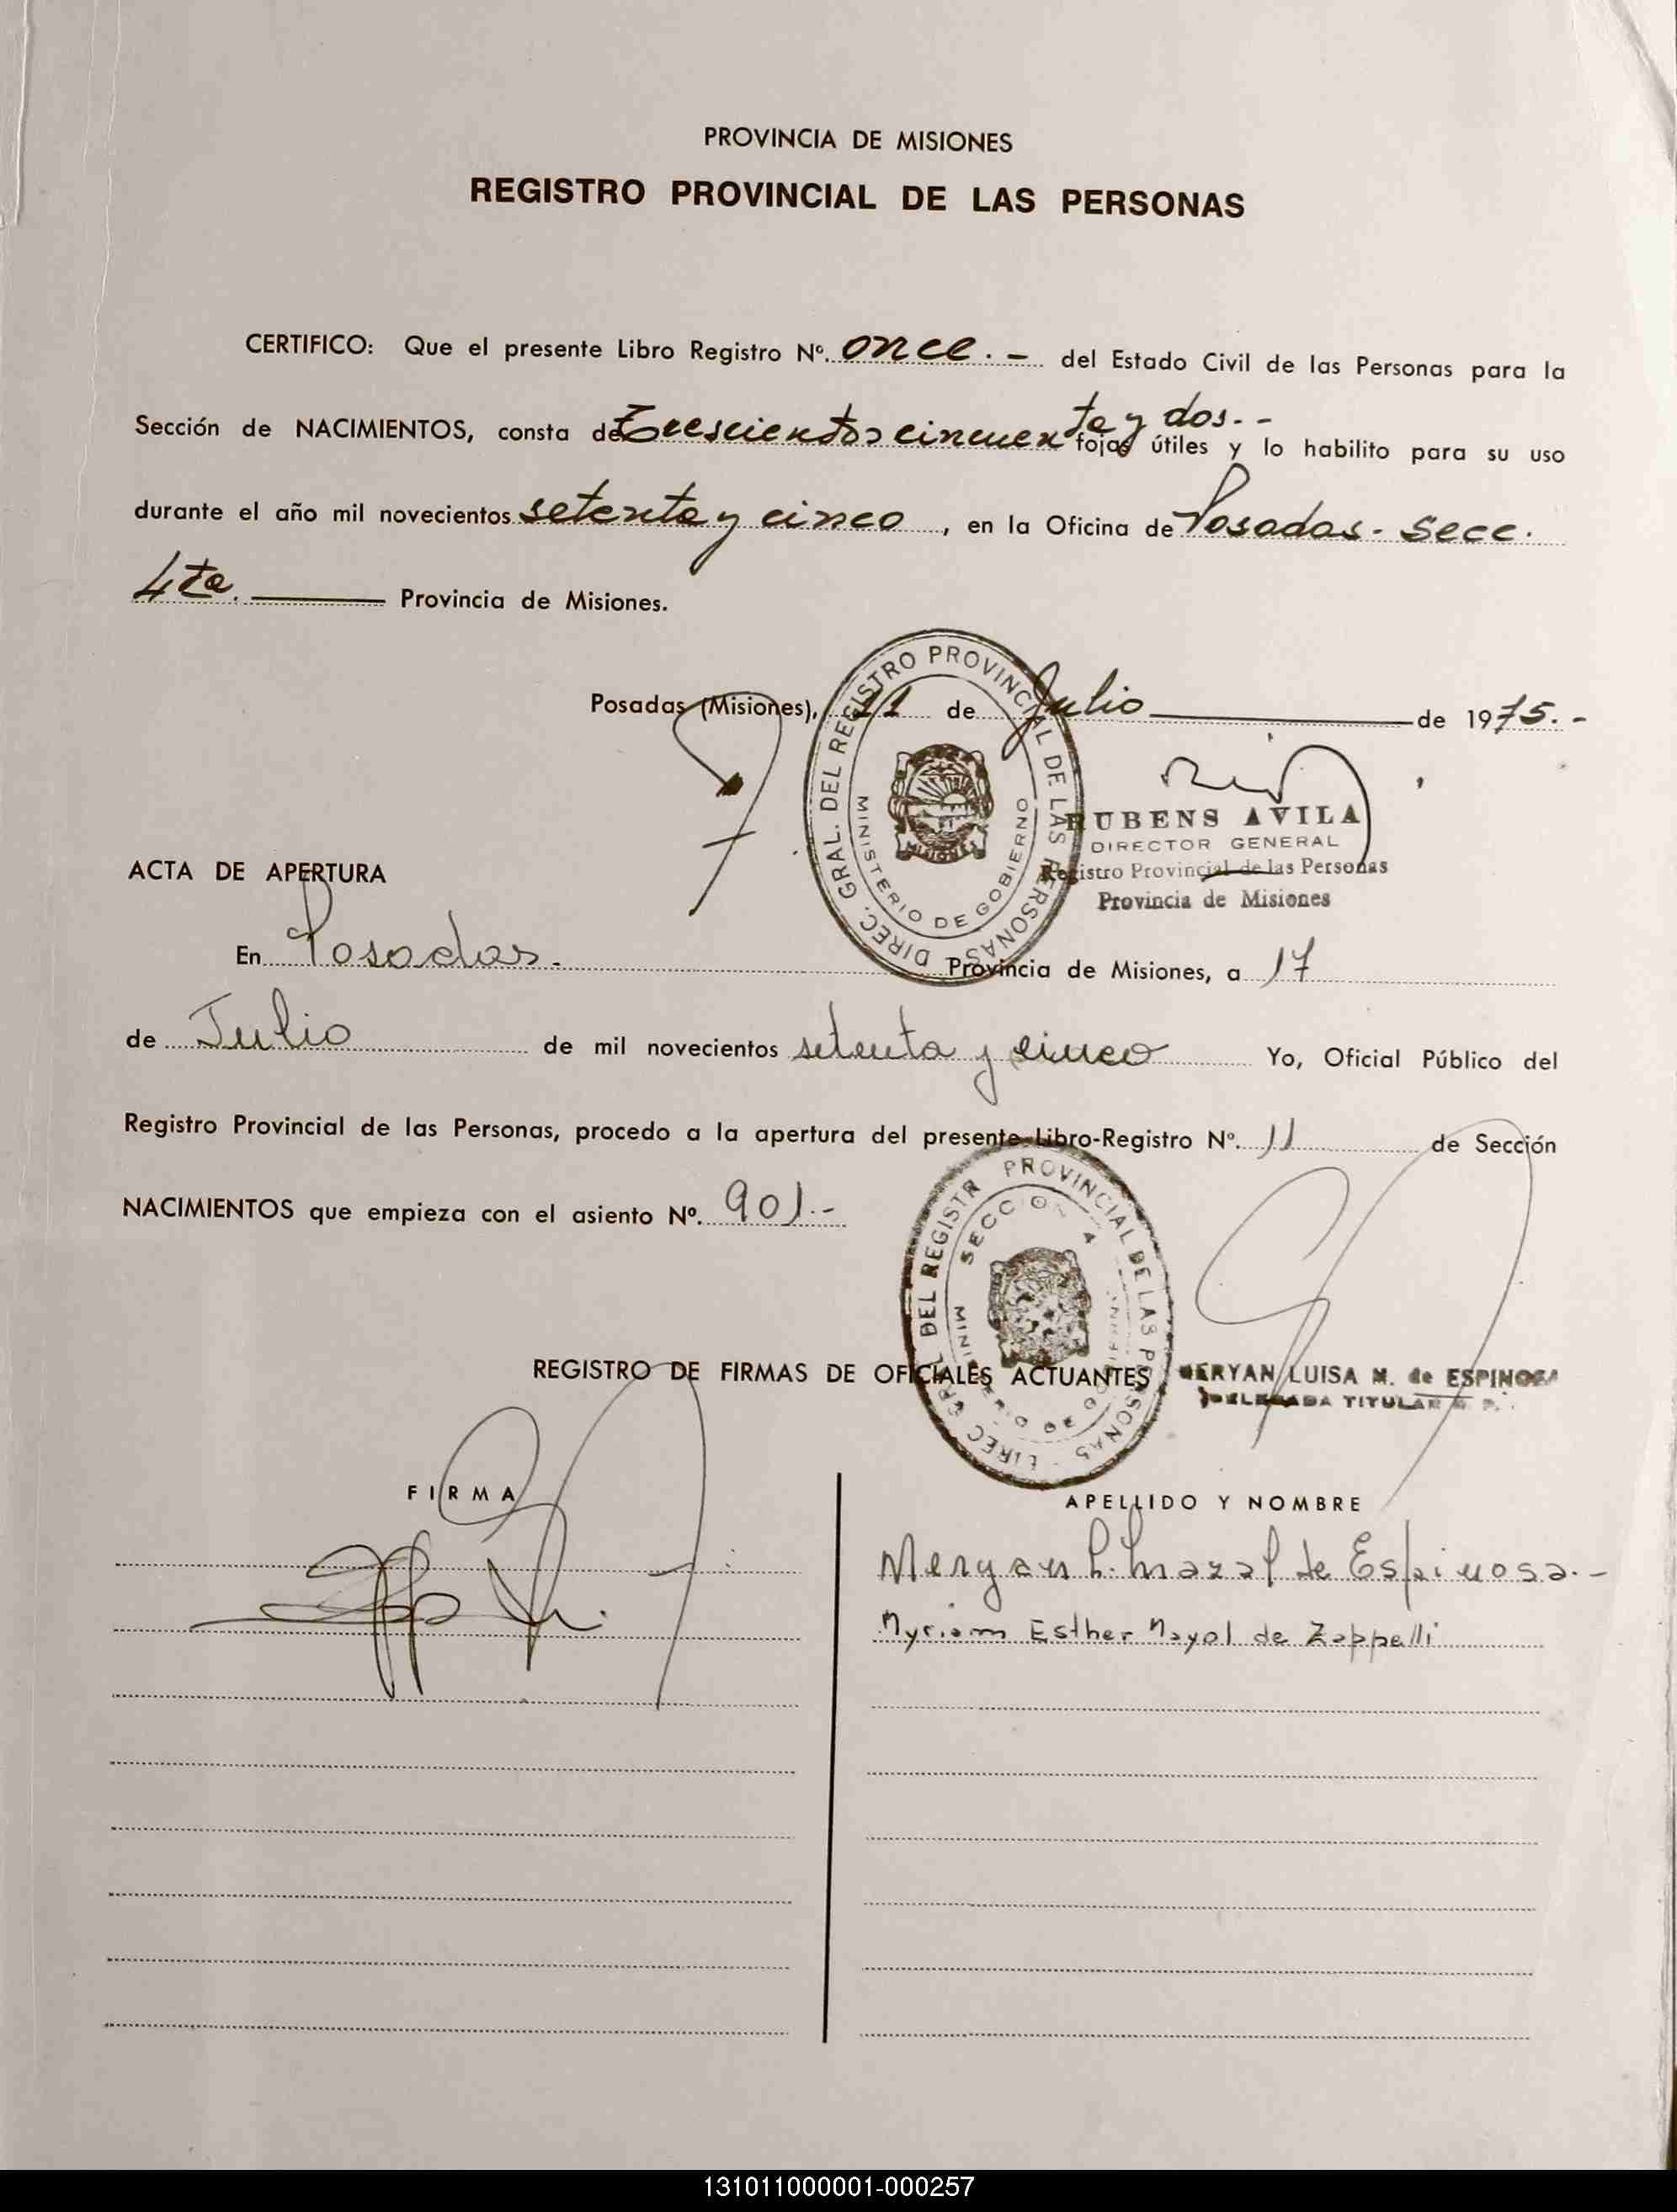 PROVINCIA DE MISIONES
REGISTRO PROVINCIAL DE LAS PERSONAS
CERTIFICO: Que el presente Libro Registro Nº. once. - del Estado Civil de las Personas para la
Sección de NACIMIENTOS, consta de Trescientos cincuenta y dos.- fojas útiles y lo habilito para su uso
durante el año mil novecientos setenta y cinco, en la Oficina de Posadas - Secc.
4ta. Provincia de Misiones.
Posadas (Misiones), 11 de Julio de 1975.-
DIREC. GRAL. DEL REGISTRO PROVINCIAL DE LAS PERSONAS
MINISTERIO DE GOBIERNO
MISIONES
RUBENS AVILA
DIRECTOR GENERAL
Registro Provincial de las Personas
Provincia de Misiones
ACTA DE APERTURA
En Posadas.- Provincia de Misiones, a 17
de Julio de mil novecientos setenta y cinco Yo, Oficial Público del
Registro Provincial de las Personas, procedo a la apertura del presente Libro-Registro Nº. 11 de Sección
NACIMIENTOS que empieza con el asiento Nº. 901.-
DEL REGISTR PROVINCIAL DE LAS PERSONAS
REGISTRO DE FIRMAS DE OFICIALES ACTUANTES
MERYAN LUISA M. de ESPINOSA
DELEGADA TITULAR
FIRMA
APELLIDO Y NOMBRE
Meryan L. Mazal de Espinosa.-
Myriam Esther Mayol de Zappelli
131011000001-000257